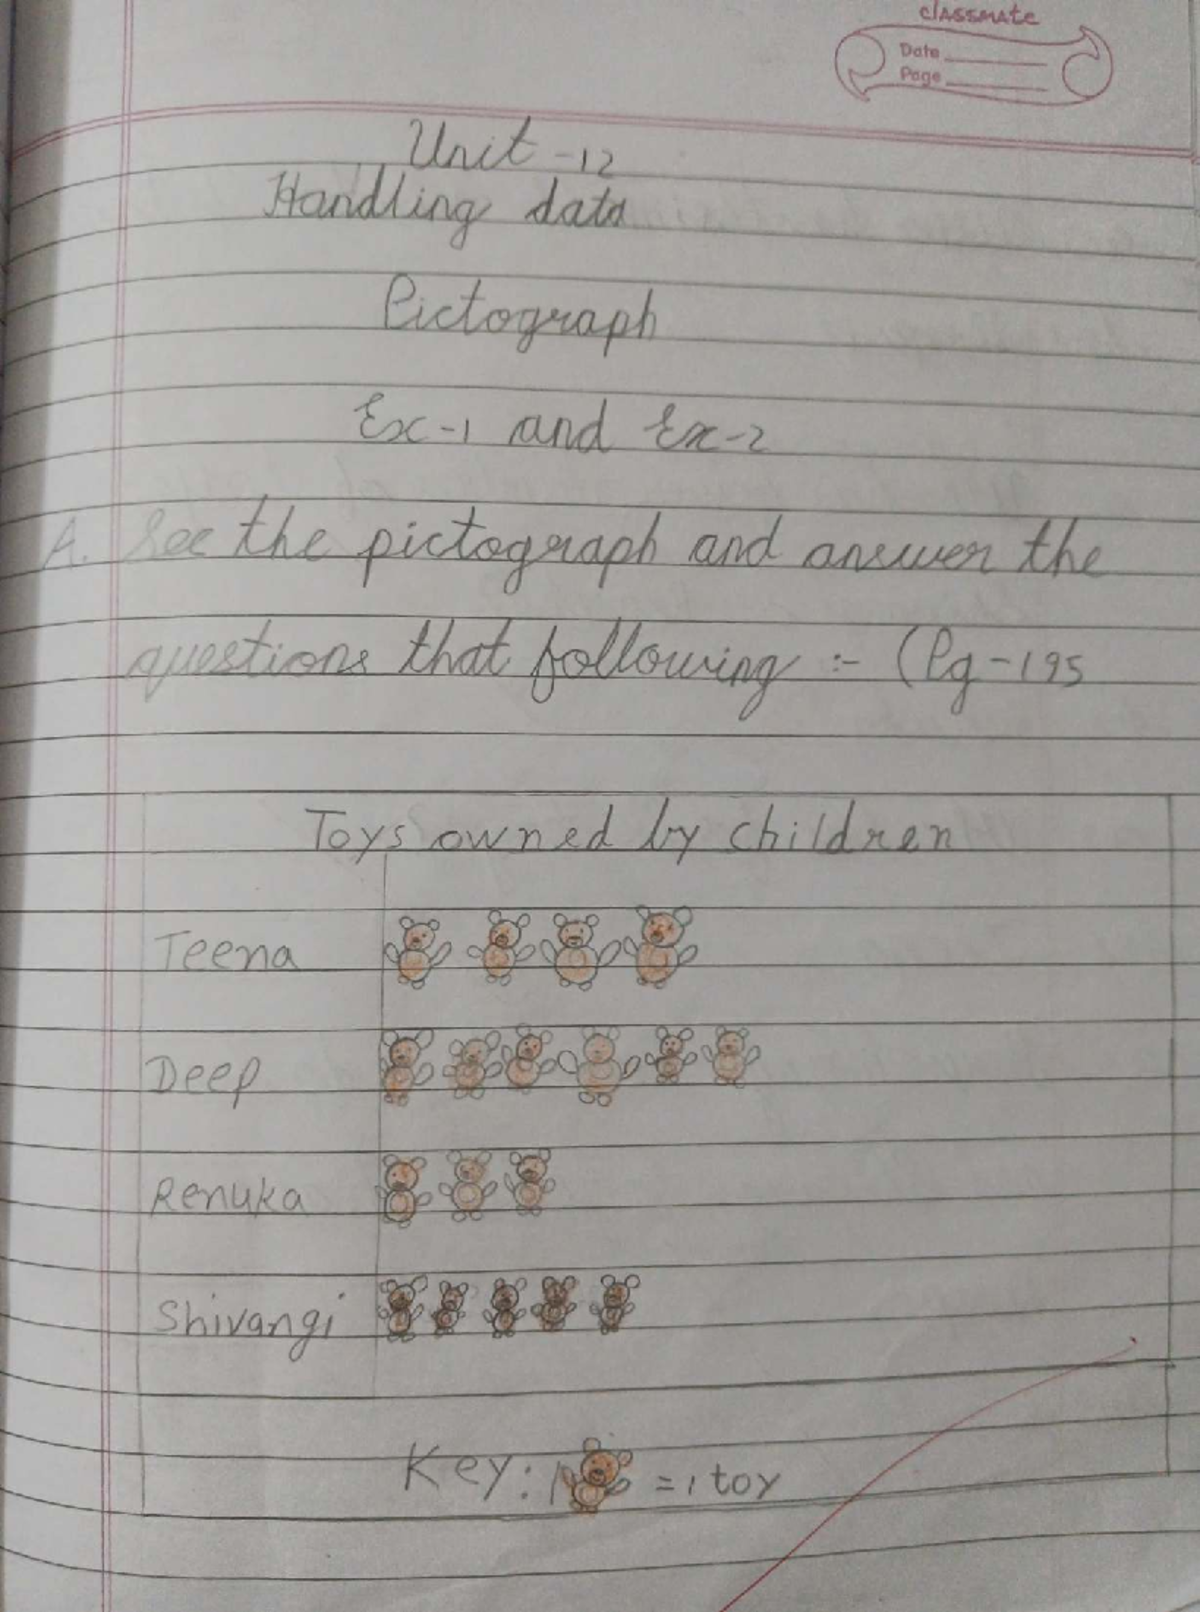 classmate
Date
Page
Unit -12
Handling data
Pictograph
Ex-1 and Ex-2
A. See the pictograph and answer the
questions that following :- (Pg-195
Toys owned by children
Teena
Deep
Renuka
Shivangi
Key: 1 = 1 toy